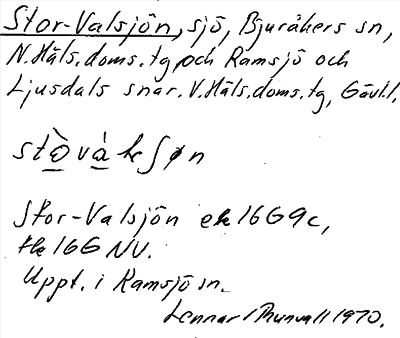 Stor-Valsjön, sjö, Bjuråkers sn,
N. Häls. doms. tg och Ramsjö och
Ljusdals snar. V. Häls. doms. tg, Gävl. l.
Stor-Valsjön ek 16G9c,
tk 16G NV.
Uppt. i Ramsjö sn.
Lennart Thunvall 1970.